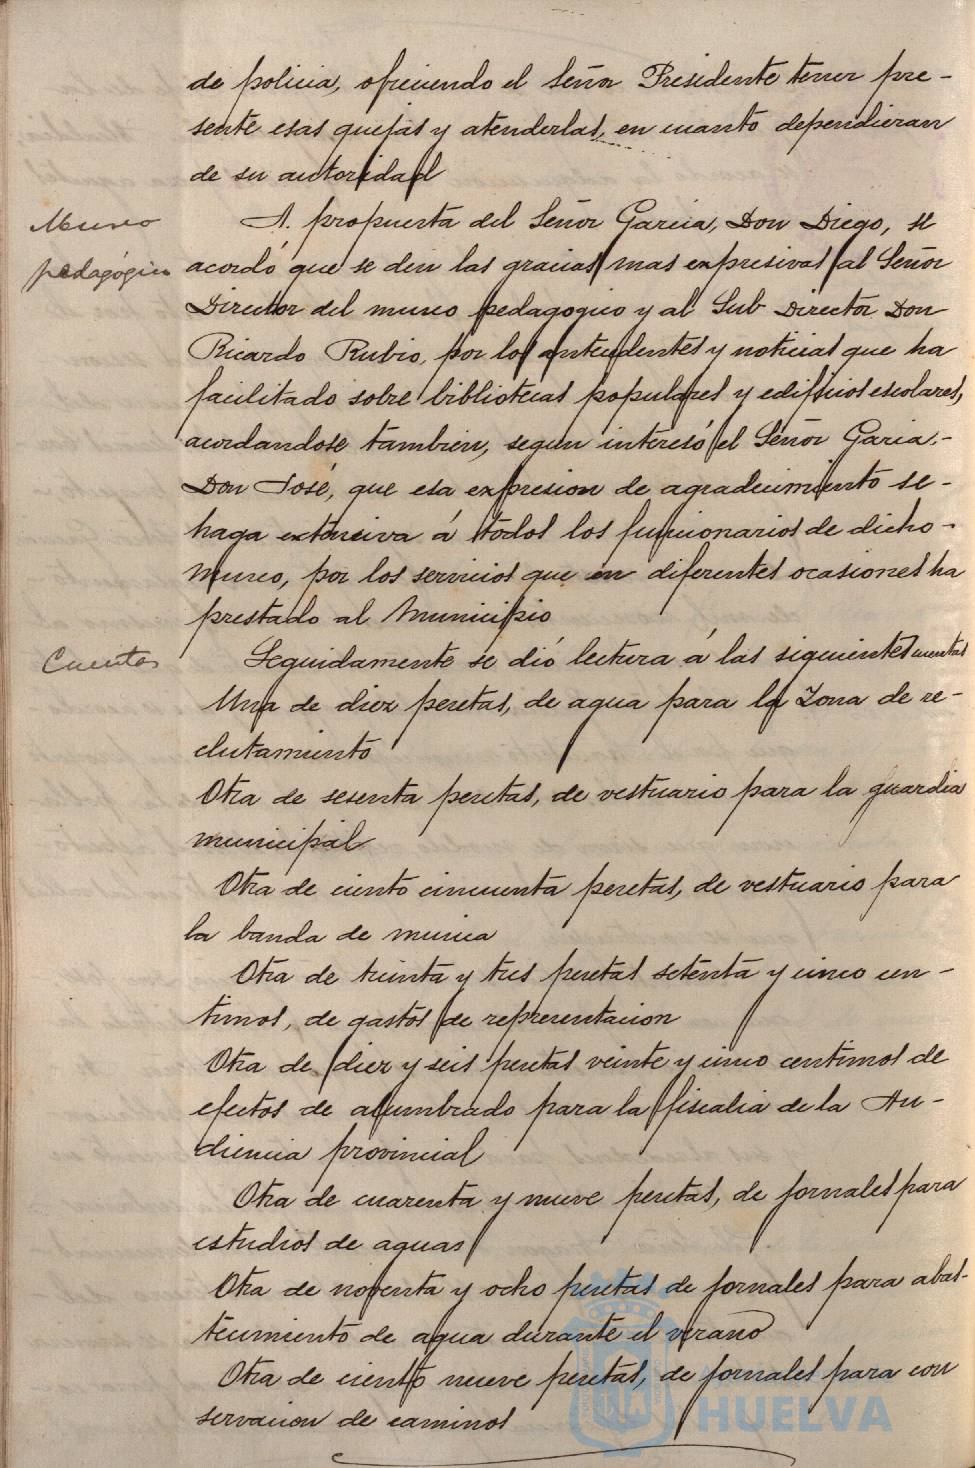 de policia, ofreciendo el Señor Presidente tener pre-
sente esas quejas y atenderlas, en cuanto dependieran
de su autoridad
Museo
pedagógico
A. propuesta del Señor Garcia, Don Diego, se
acordó que se den las gracias mas expresivas al Señor
Director del museo pedagogico y al Sub Director Don
Ricardo Rubio, por los antecedentes y noticias que ha
facilitado sobre bibliotecas populares y edificios escolares,
acordandose tambien, segun interesó el Señor Garcia.-
Don José, que esa expresion de agradecimiento se-
haga extensiva á todos los funcionarios de dicho-
museo, por los servicios que en diferentes ocasiones ha
prestado al Municipio
Cuentas
Seguidamente se dió lectura á las siguientes cuentas
Una de diez pesetas, de agua para la Zona de re-
clutamiento
Otra de sesenta pesetas, de vestuario para la guardia
municipal
Otra de ciento cincuenta pesetas, de vestuario para
la banda de musica
Otra de treinta y tres pesetas setenta y cinco cen-
timos, de gastos de representacion
Otra de diez y seis pesetas veinte y cinco centimos de
efectos de alumbrado para la fiscalia de la Au-
diencia provincial
Otra de cuarenta y nueve pesetas, de jornales para
estudios de aguas
Otra de noventa y ocho pesetas de jornales para abas-
tecimiento de agua durante el verano
Otra de ciento nueve pesetas, de jornales para con
servacion de caminos
HUELVA